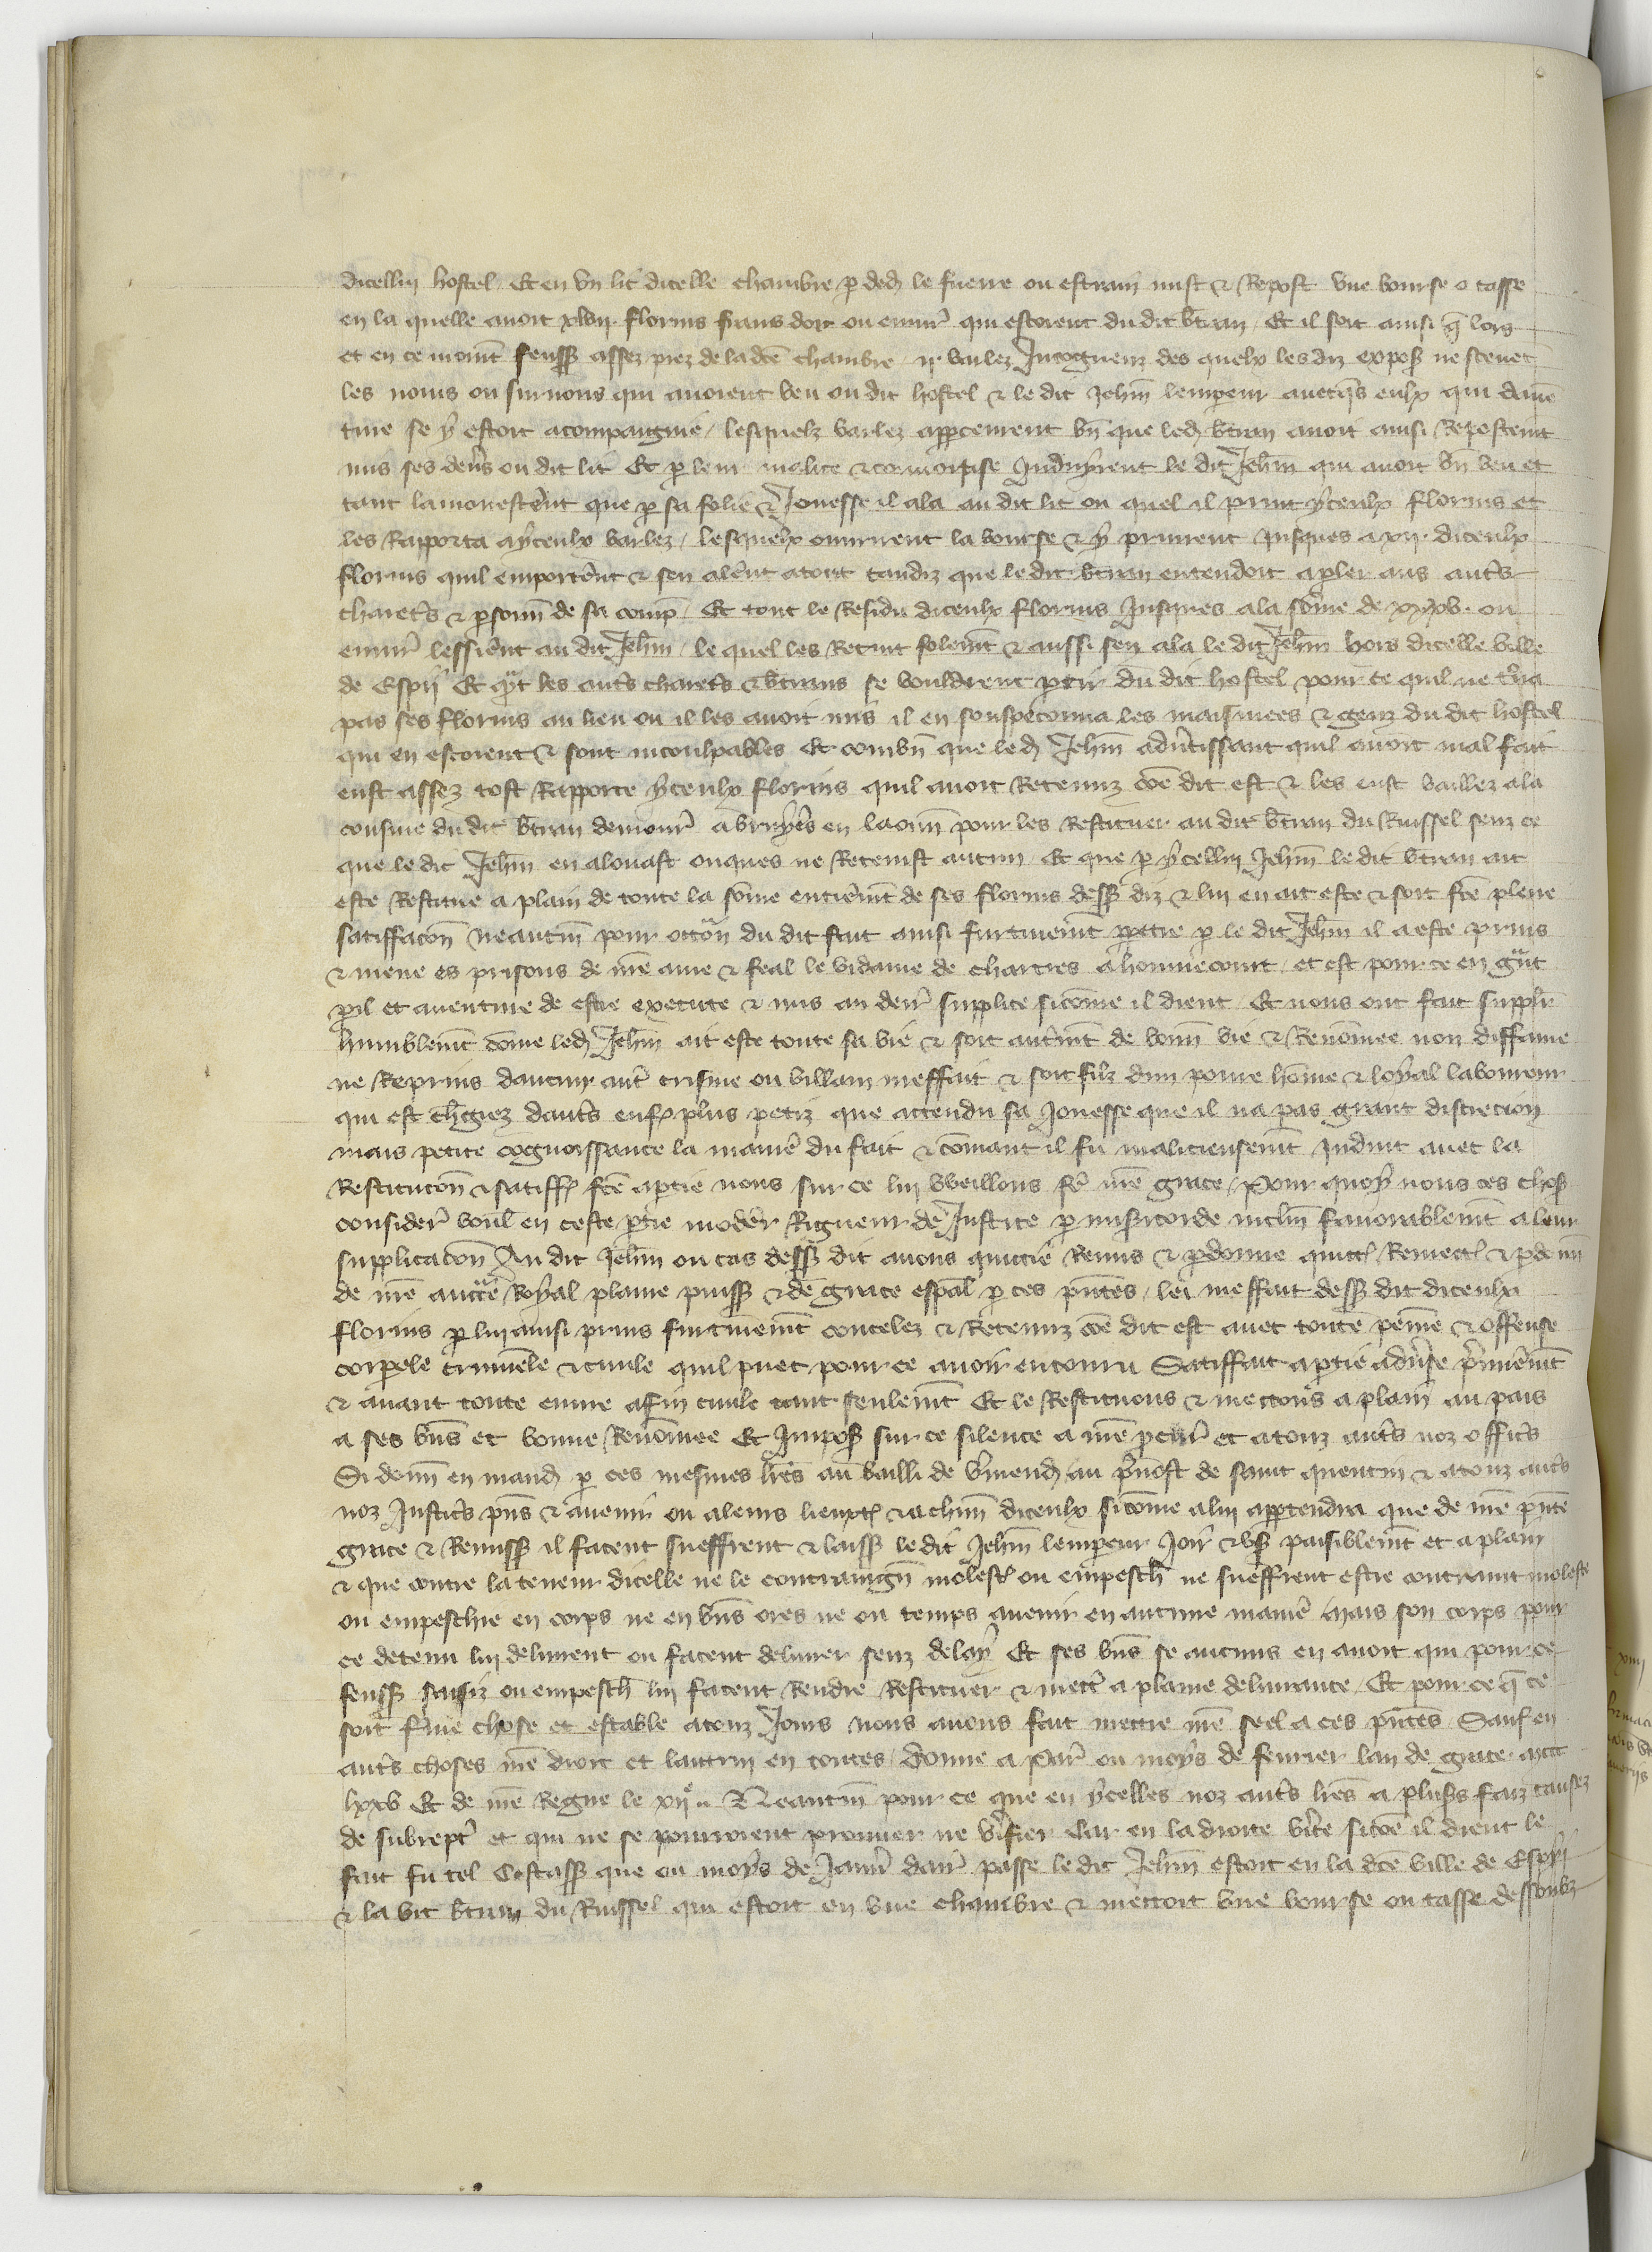 dicellui hostel Et en un lit dicelle chambre p ded le fuerre ou estrain mist & Repost une bourse o tasse
en la quelle avoit xlvii florins frans dor ou envir̃ qui estoient du dit btran Et il soit ainsi q̃ lors
et en ce momt feuss assez prez de la dce chambre ii varlez Incogneuz des quelx les diz expos ne scevet
les noms ou surnoms qui avoient beu ou dit hostel & le dit Jehm lempeur avecqs eulx qui daven
ture se y estoit acompaignie / lesquelz varlez appceurent bn que led btran avoit ainsi Repostemt
mis ses deners ou dit lit Et p leur malice & convoitise Induyrent le dit Jehm qui avoit bn beu et
tant lamonesterent que p sa folie & Jonesse il ala au dit lit ou quel il print yceulx florins et
les Rapporta a yceulx varlez / lesquelx ouvrirent la bourse & y prinrent Jusques a xii diceulx
florins quil emporterent & sen alerent atout tandiz que le dit btran entendoit a pler aus auts
charets & psonn de sa comp Et tout le Residu diceulx florins Jusques a la some de xxxv ou
envir̃ lessierent au dit Jehm / le quel les Retint folemt & aussi sen ala le dit Jehm hors dicelle ville
de Espy Et qnt les auts charets & btrans se vouldrent ptir du dit hostel pour ce quil ne truva
pas ses florins au lieu ou il les avoit mis il en souspeconna les maisnees & genz du dit hostel
qui en estoient & sont incoulpables Et combn que led Jehm advtissant quil avoit mal fait
eust assez tost Rapporte yceulx florins quil avoit Retenuz coe dit est & les eust bailliez a la
cousine du dit btran demour̃ a bruyeres en laonn pour les Restituer au dit btran du Ruissel senz ce
que le dit Jehm en alouast onques ne Retenist aucun Et que p ycellui Jehm le dit btran ait
este Restitue a plain de toute la some entieremt de ses florins dess diz & lui en ait este & soit fce plene
satiffacon Neantm pour occon du dit fait ainsi furtivemt ppetre p le dit Jehm il a este prins
& mene es prisons de nre ame & feal le vidame de chartres a honnecourt et est pour ce en gnt
pil et aventure de estre execute & mis au derr̃ supplice sicome il dient Et nous ont fait supplier
humblemt come led Jehm ait este toute sa vie & soit autremt de bonn vie & Renomee non diffame
ne Reprins daucun autr crisme ou villain meffait & soit filz dun povre home & loyal laboureur
qui est chgiez dauts enf plus petiz que attendu sa Jonesse que il na pas grant discrecion
mais petite cognoissance la manie du fait & comant il fu malicieusemt Induit avec la
Restitucon & satiff fce a ptie nous sur ce lui vueillons fe nre grace / Pour quoy nous ces chos
consider̃ voul en ceste ptie moder Rigueur de Justice p misicorde inclin favorablemt a leur
supplicacon Au dit Jehm ou cas dess dit avons quittie Remis & pdonne quitt Remett & pdonn
de nre auctte Royal plaine puiss & de grace espal p ces pntes / le meffait dess dit diceulx
florins p lui ainsi prins furtivemt concelez & Retenuz coe dit est avec toute peine & offense
corpele criminele & civile quil puet pour ce avoir encouru Satiffait a ptie adverse premieremt
& avant toute euvre afin civile tant seulemt Et le Restituons & mettons a plain au pais
a ses bns et bonne Renomee Et Impos sur ce silence a nre pcur et a touz auts noz offics
Si donn en mand p ces mesmes lres au bailli de vmend au prevost de saint quentin & a touz auts
noz Justics pns & avenir ou a leurs lieuxt & a chun diceulx sicome a lui apptendra que de nre pnte
grace & Remiss il facent sueffrent & laiss le dit Jehm lempeur Joir & us paisiblemt et a plain
& que contre la teneur dicelle ne le contraingn molest ou empesch ne sueffrent estre contraint moleste
ou empeschie en corps ne en bns ores ne ou temps avenir en aucune manie Mais son corps pour
ce detenu lui delivrent ou facent delivrer senz delay Et ses bns se aucuns en avoit qui pour ce
feuss saisiz ou empesch lui facent Rendre Restituer & mett a plaine delivrance Et pour ce q̃ ce
soit ferme chose et estable a touz Jours nous avons fait mettre nre seel a ces pntes Sauf en
auts choses nre droit et lautrui en toutes Donne a Par ou moys de fevrier lan de grace mccc
lxxv Et de nre Regne le xii Neantm pour ce que en ycelles noz auts lres a pluss faiz causez
de subrept et qui ne se pourroient prouver ne verifier Car en la droite verite sicoe il dient le
fait fu tel Cestass que ou moys de Janvr darr passe le dit Jehm estoit en la dce ville de Espy
& la vit btran du Ruissel qui estoit en une chambre & mettoit une bourse ou tasse dessoubz